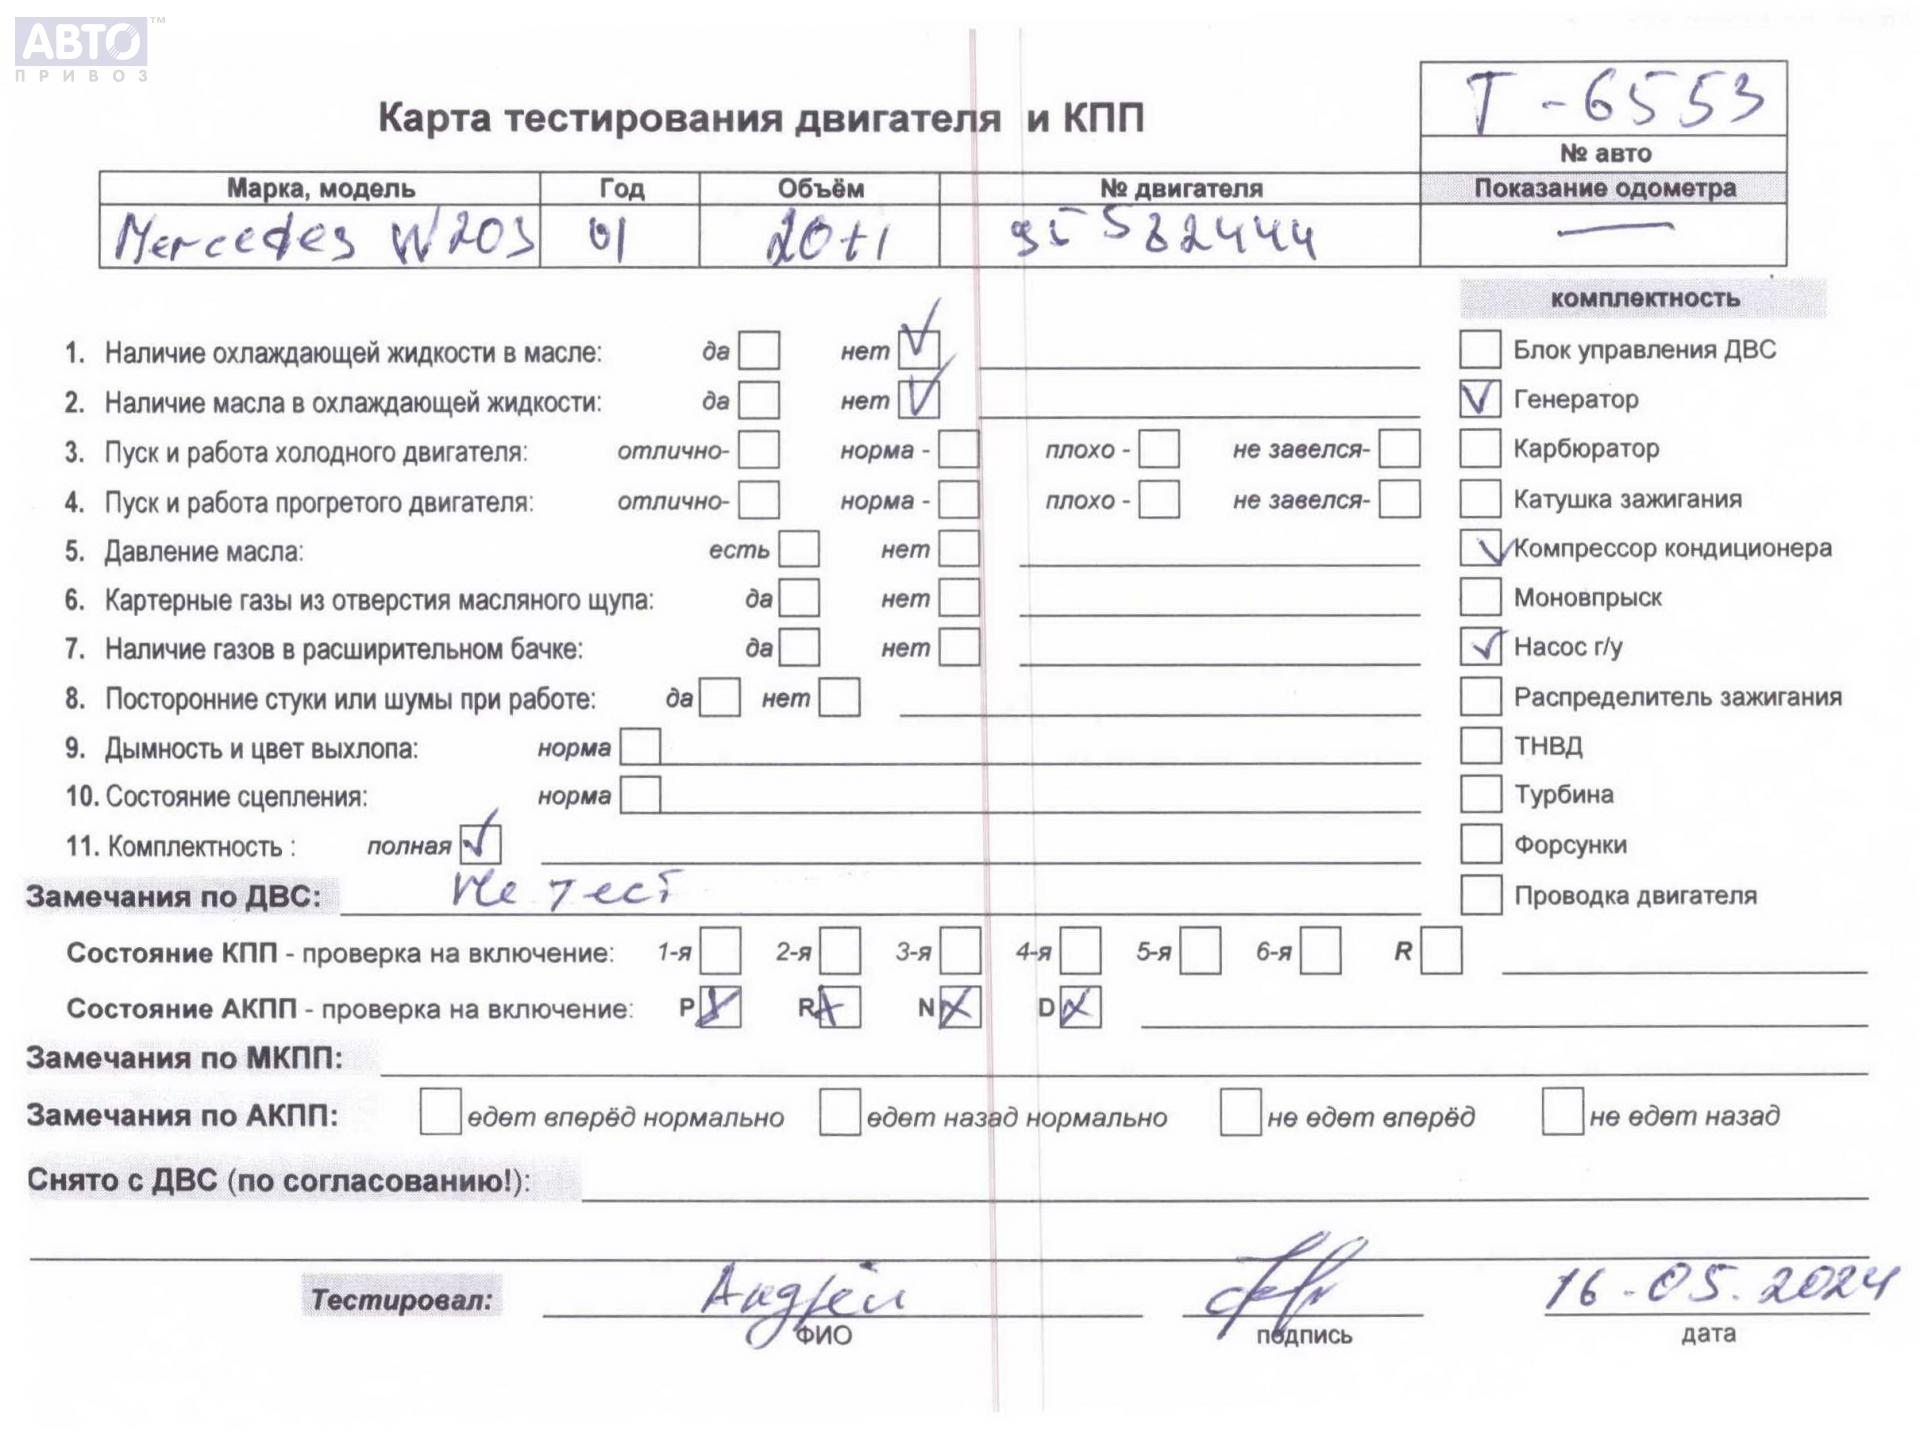 АВТО™
ПРИВОЗ
Т-6553
Карта тестирования двигателя и КПП
№ авто
Марка, модель Год Объём № двигателя Показание одометра
Mercedes W203 01 20+1 95582444 —
комплектность
1. Наличие охлаждающей жидкости в масле: да нет Блок управления ДВС
2. Наличие масла в охлаждающей жидкости: да нет Генератор
3. Пуск и работа холодного двигателя: отлично- норма - плохо - не завелся- Карбюратор
4. Пуск и работа прогретого двигателя: отлично- норма - плохо - не завелся- Катушка зажигания
5. Давление масла: есть нет Компрессор кондиционера
6. Картерные газы из отверстия масляного щупа: да нет Моновпрыск
7. Наличие газов в расширительном бачке: да нет Насос г/у
8. Посторонние стуки или шумы при работе: да нет Распределитель зажигания
9. Дымность и цвет выхлопа: норма ТНВД
10. Состояние сцепления: норма Турбина
11. Комплектность : полная Форсунки
Замечания по ДВС: Не тест Проводка двигателя
Состояние КПП - проверка на включение: 1-я 2-я 3-я 4-я 5-я 6-я R
Состояние АКПП - проверка на включение: P R N D
Замечания по МКПП:
Замечания по АКПП: едет вперёд нормально едет назад нормально не едет вперёд не едет назад
Снято с ДВС (по согласованию!):
Тестировал: Андрей 16-05.2024
ФИО подпись дата